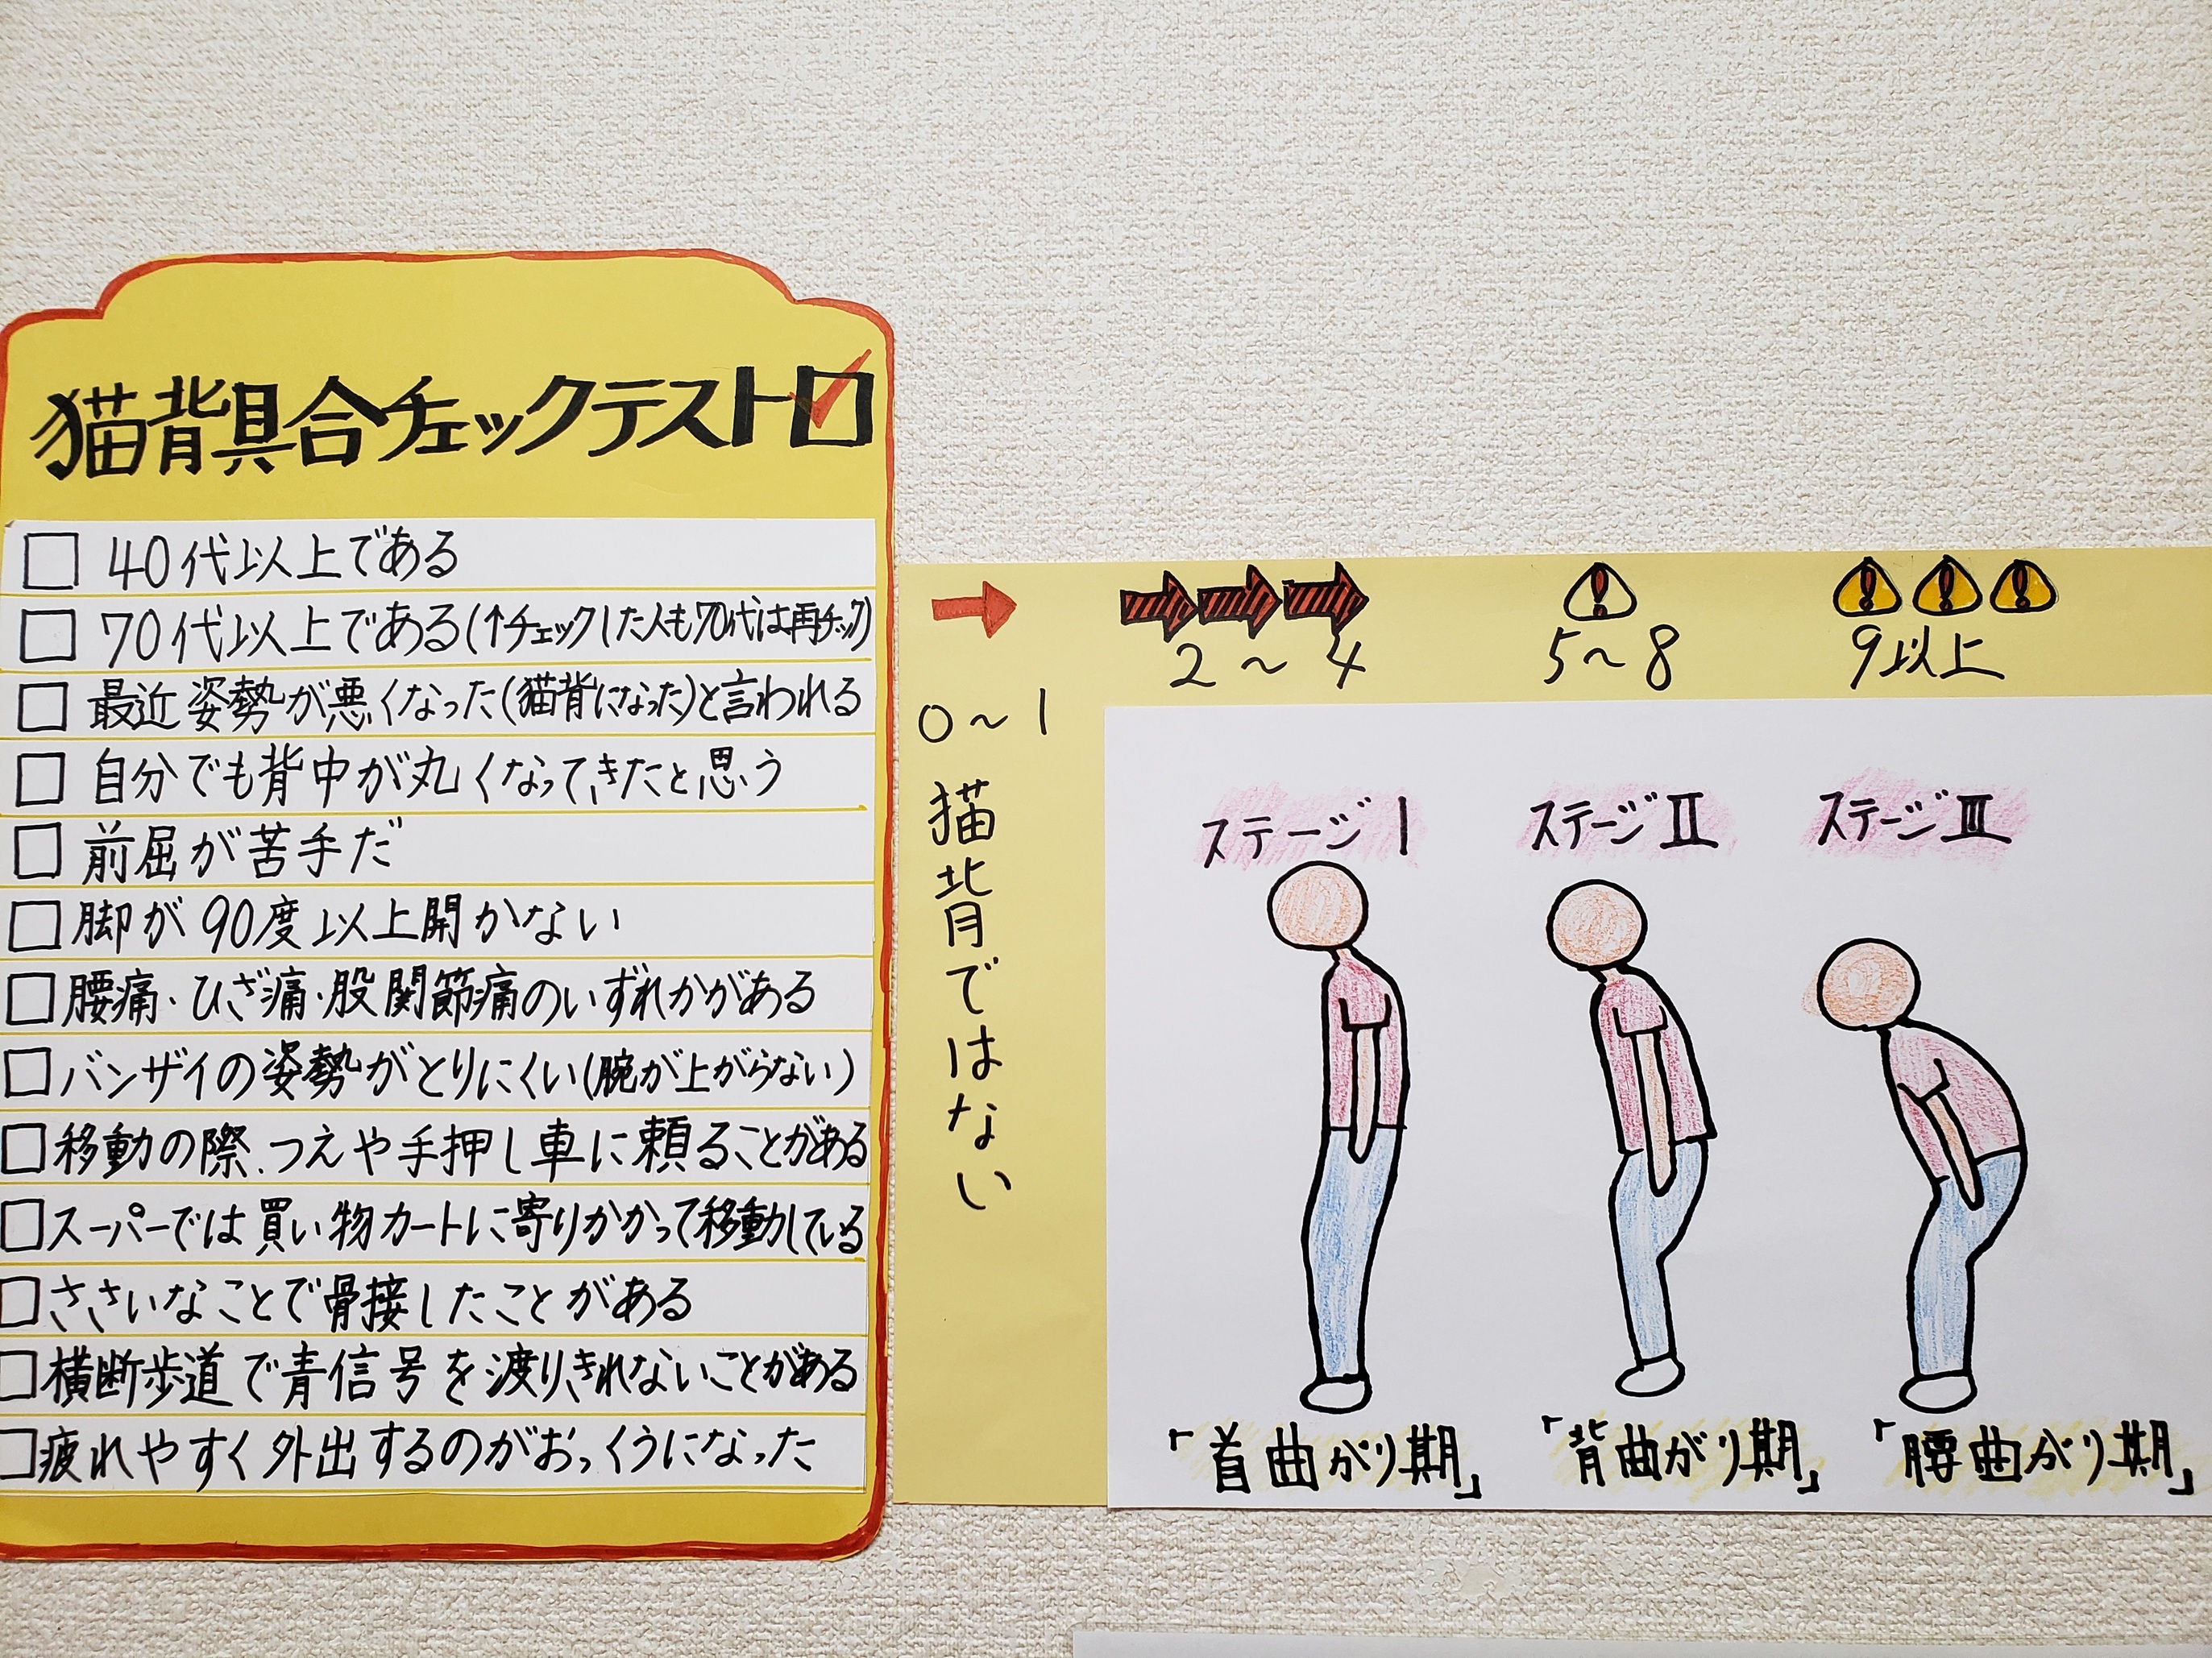 猫背具合チェックテスト☑
□ 40代以上である
□ 70代以上である(↑チェックした人も70代は再チェック)
□ 最近姿勢が悪くなった(猫背になった)と言われる
□ 自分でも背中が丸くなってきたと思う
□ 前屈が苦手だ
□ 脚が90度以上開かない
□ 腰痛・ひざ痛・股関節痛のいずれかがある
□ バンザイの姿勢がとりにくい(腕が上がらない)
□ 移動の際、つえや手押し車に頼ることがある
□ スーパーでは買い物カートに寄りかかって移動している
□ ささいなことで骨接したことがある
□ 横断歩道で青信号を渡りきれないことがある
□ 疲れやすく外出するのがおっくうになった
0~1
猫背ではない
2~4
5~8
9以上
ステージI
ステージII
ステージIII
「首曲がり期」
「背曲がり期」
「腰曲がり期」